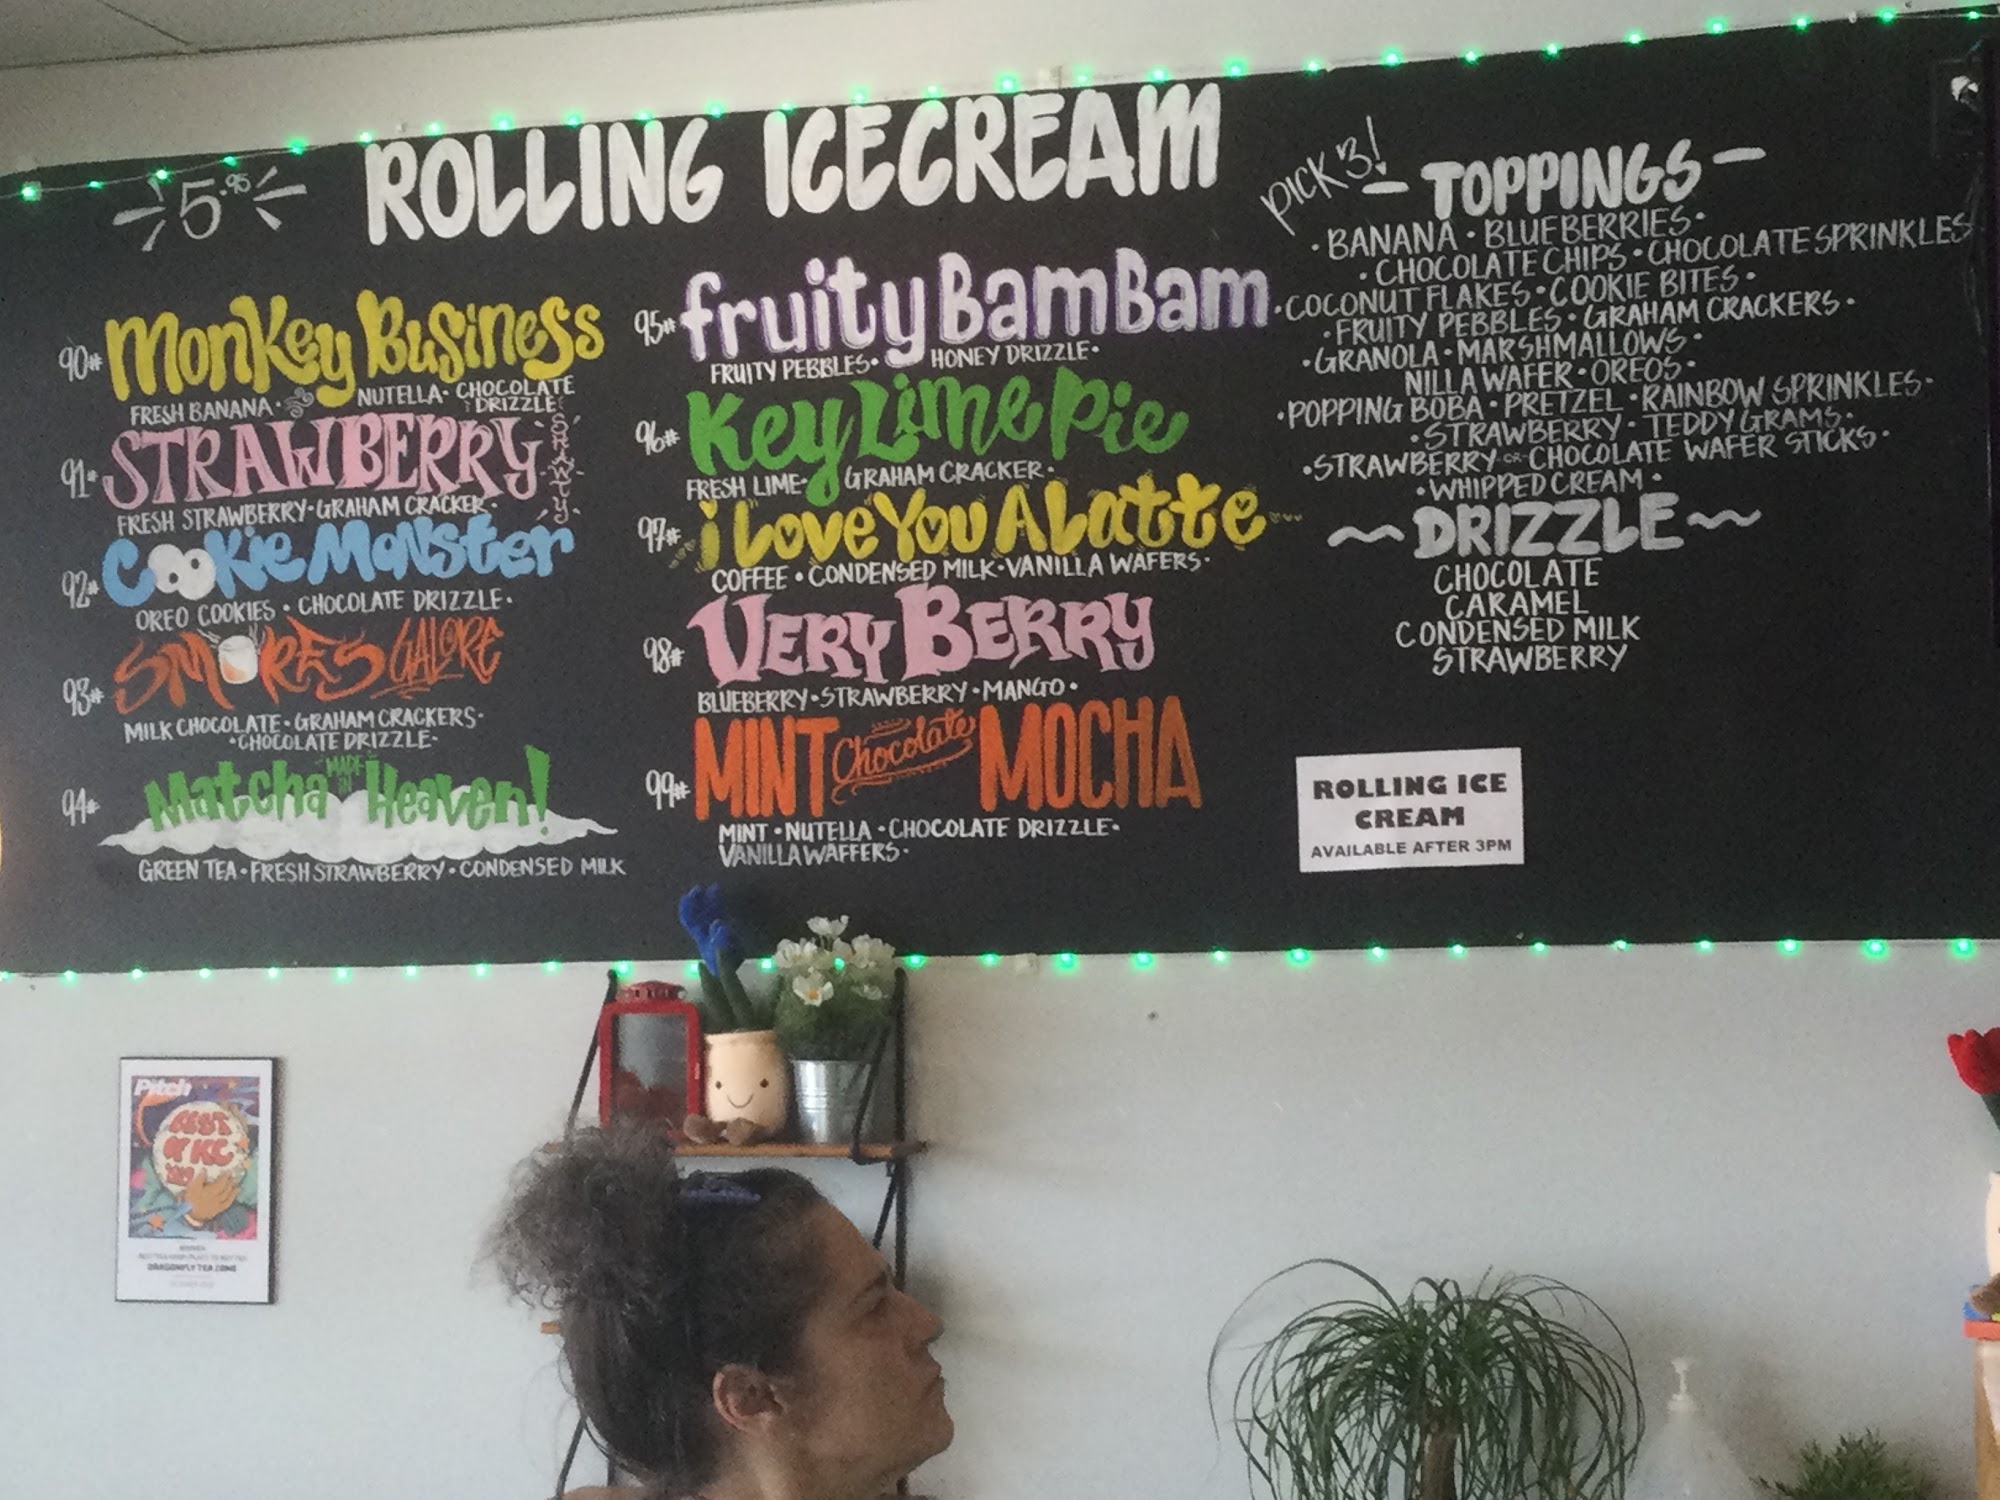 5.95
ROLLING ICECREAM
90# Monkey Business
FRESH BANANA · NUTELLA · CHOCOLATE
DRIZZLE
91# STRAWBERRY SHAWTY
FRESH STRAWBERRY · GRAHAM CRACKER ·
92# Cookie Monster
OREO COOKIES · CHOCOLATE DRIZZLE ·
93# SMORES GALORE
MILK CHOCOLATE · GRAHAM CRACKERS ·
· CHOCOLATE DRIZZLE ·
94# Matcha MADE IN Heaven!
GREEN TEA · FRESH STRAWBERRY · CONDENSED MILK
95# fruity BamBam
FRUITY PEBBLES · HONEY DRIZZLE ·
96# Key Lime Pie
FRESH LIME · GRAHAM CRACKER ·
97# i Love You A Latte
COFFEE · CONDENSED MILK · VANILLA WAFERS ·
98# VERY BERRY
BLUEBERRY · STRAWBERRY · MANGO ·
99# MINT Chocolate MOCHA
MINT · NUTELLA · CHOCOLATE DRIZZLE ·
VANILLA WAFFERS ·
PICK 3!
- TOPPINGS -
· BANANA · BLUEBERRIES ·
· CHOCOLATE CHIPS · CHOCOLATE SPRINKLES
· COCONUT FLAKES · COOKIE BITES ·
· FRUITY PEBBLES · GRAHAM CRACKERS ·
· GRANOLA · MARSHMALLOWS ·
NILLA WAFER · OREOS ·
· POPPING BOBA · PRETZEL · RAINBOW SPRINKLES ·
· STRAWBERRY · TEDDY GRAMS ·
· STRAWBERRY OR CHOCOLATE WAFER STICKS ·
· WHIPPED CREAM ·
~ DRIZZLE ~
CHOCOLATE
CARAMEL
CONDENSED MILK
STRAWBERRY
ROLLING ICE
CREAM
AVAILABLE AFTER 3PM
Pitch
BEST
OF KC
DRAGONFLY TEA ZONE